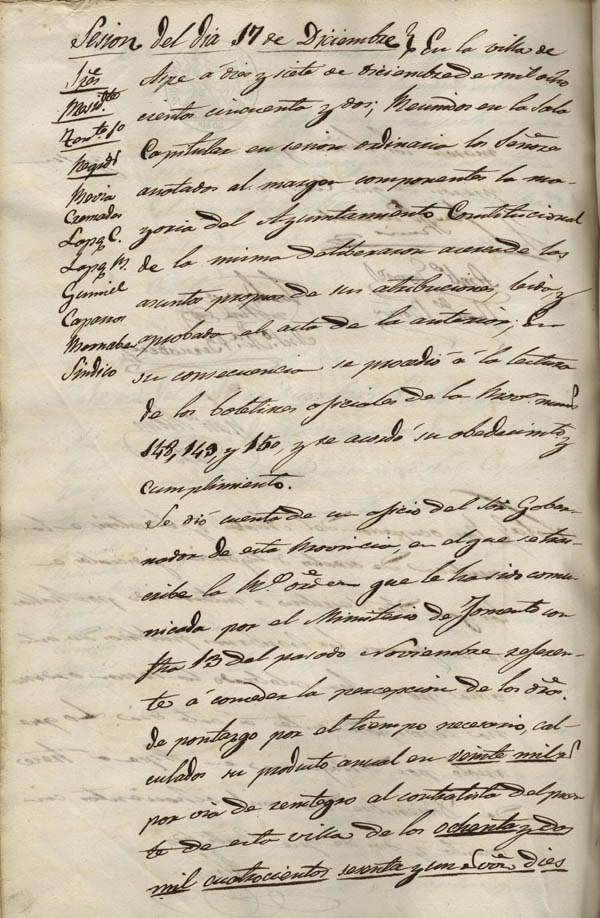 Sesion del dia 17 de Diciembre
Sres
Presid.te
Ten.te 1º
Regid.s
Mexia
Cremades
Lopez C.
Lopez M.
Gumiel
Caparros
Mornabeu
Sindico
En la villa de
Aspe á diez y siete de diciembre de mil ocho
cientos cincuenta y dos; Reunidos en la Sala
Capitular en sesion ordinaria los Señores
anotados al margen componentes la ma-
yoria del Ayuntamiento Constitucional
de la misma deliberaron acerca de los
asuntos propios de sus atribuciones, leida, y
aprobada el acta de la anterior; En
su consecuencia se procedió á la lectura
de los boletines oficiales de la Prov.a num.s
148, 149, y 150, y se acordó su obedecim.to y
cumplimiento.
Se dió cuenta de un oficio del Sor. Gober-
nador de esta Provincia, en el que se trans-
cribe la R.l orden que le ha sido comu-
nicada por el Ministerio de Fomento con
fha 13 del pasado Noviembre referen-
te á conceder la percepcion de los dros.
de pontazgo por el tiempo necesario, cal-
culados su producto anual en veinte mil r.s
por via de reintegro al contratista del puen-
te de esta villa de los ochenta y dos
mil cuatrocientos sesenta y un r.s von. dies